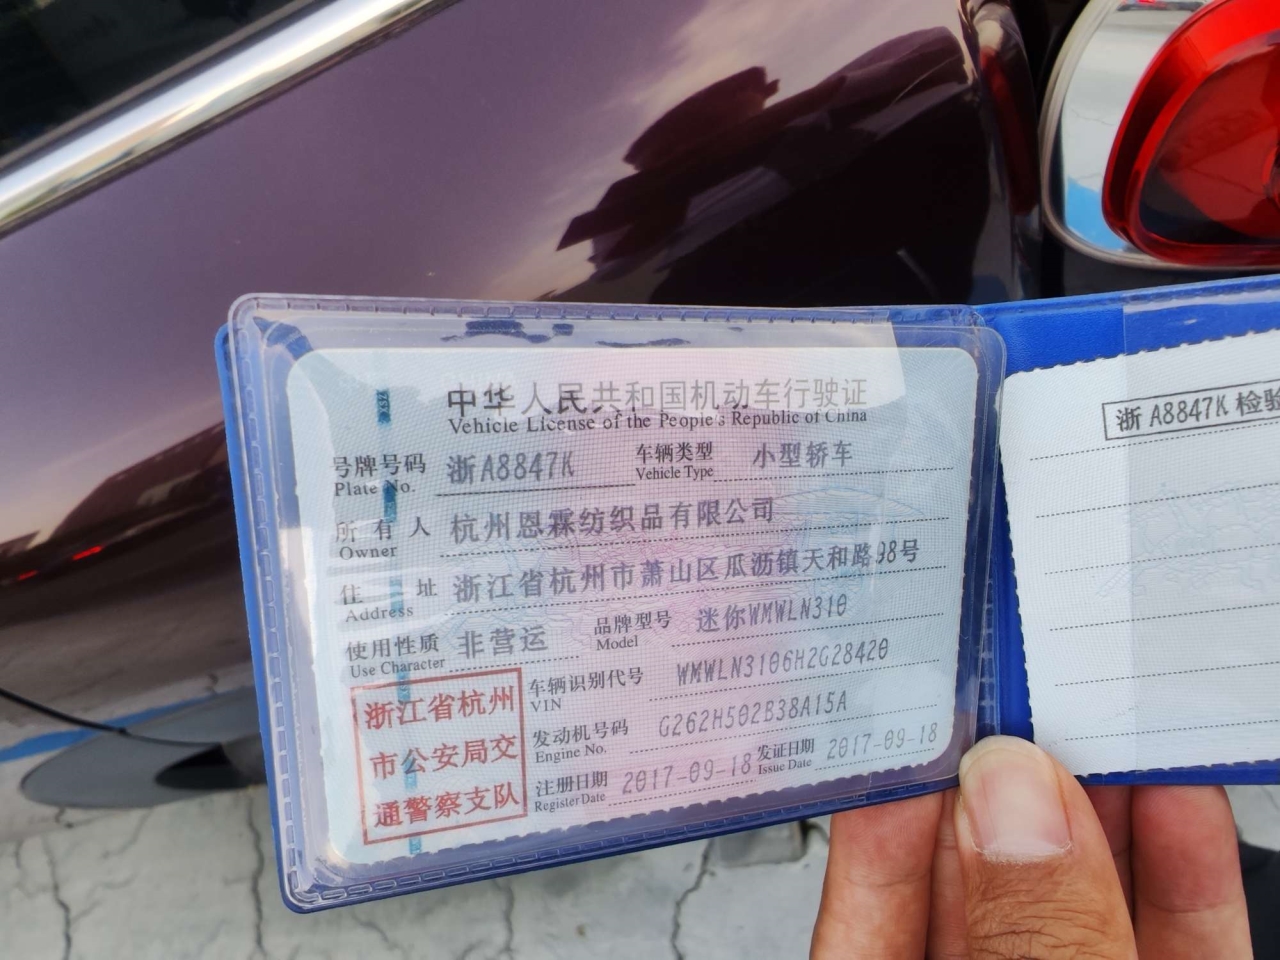 中华人民共和国机动车行驶证
Vehicle License of the People's Republic of China
号牌号码 浙A8847K 车辆类型 小型轿车
Plate No. Vehicle Type
所有人 杭州恩霖纺织品有限公司
Owner
住址 浙江省杭州市萧山区瓜沥镇天和路98号
Address
使用性质 非营运 品牌型号 迷你WMWLN310
Use Character Model
车辆识别代号 WMWLN3106H2G28420
VIN
发动机号码 G262H502B38A15A
Engine No.
注册日期 2017-09-18 发证日期 2017-09-18
Register Date Issue Date
浙江省杭州
市公安局交
通警察支队
浙A8847K 检验